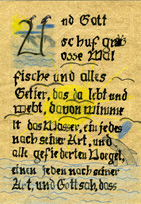 Und Gott
schuf große
Wal
fische und alles
Getier, das da lebt und
webt, davon wimme
lt das Wasser, ein jedes
nach seiner Art, und
alle gefiederten Voegel,
einen jeden nach seiner
Art, und Gott sah, dass